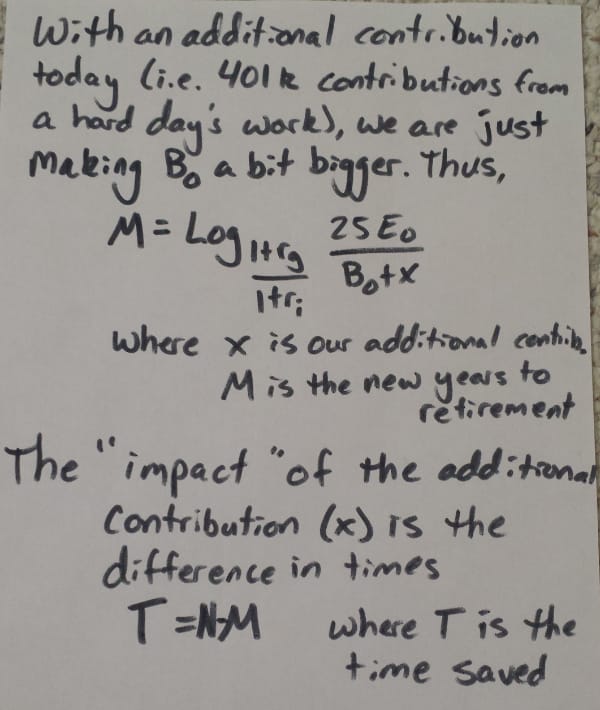 With an additional contribution
today (i.e. 401k contributions from
a hard day's work), we are just
making B₀ a bit bigger. Thus,
M = Log_((1+rg)/(1+ri)) (25 E₀)/(B₀+x)
where x is our additional contrib.
M is the new years to
retirement
The "impact" of the additional
contribution (x) is the
difference in times
T = N-M where T is the
time saved